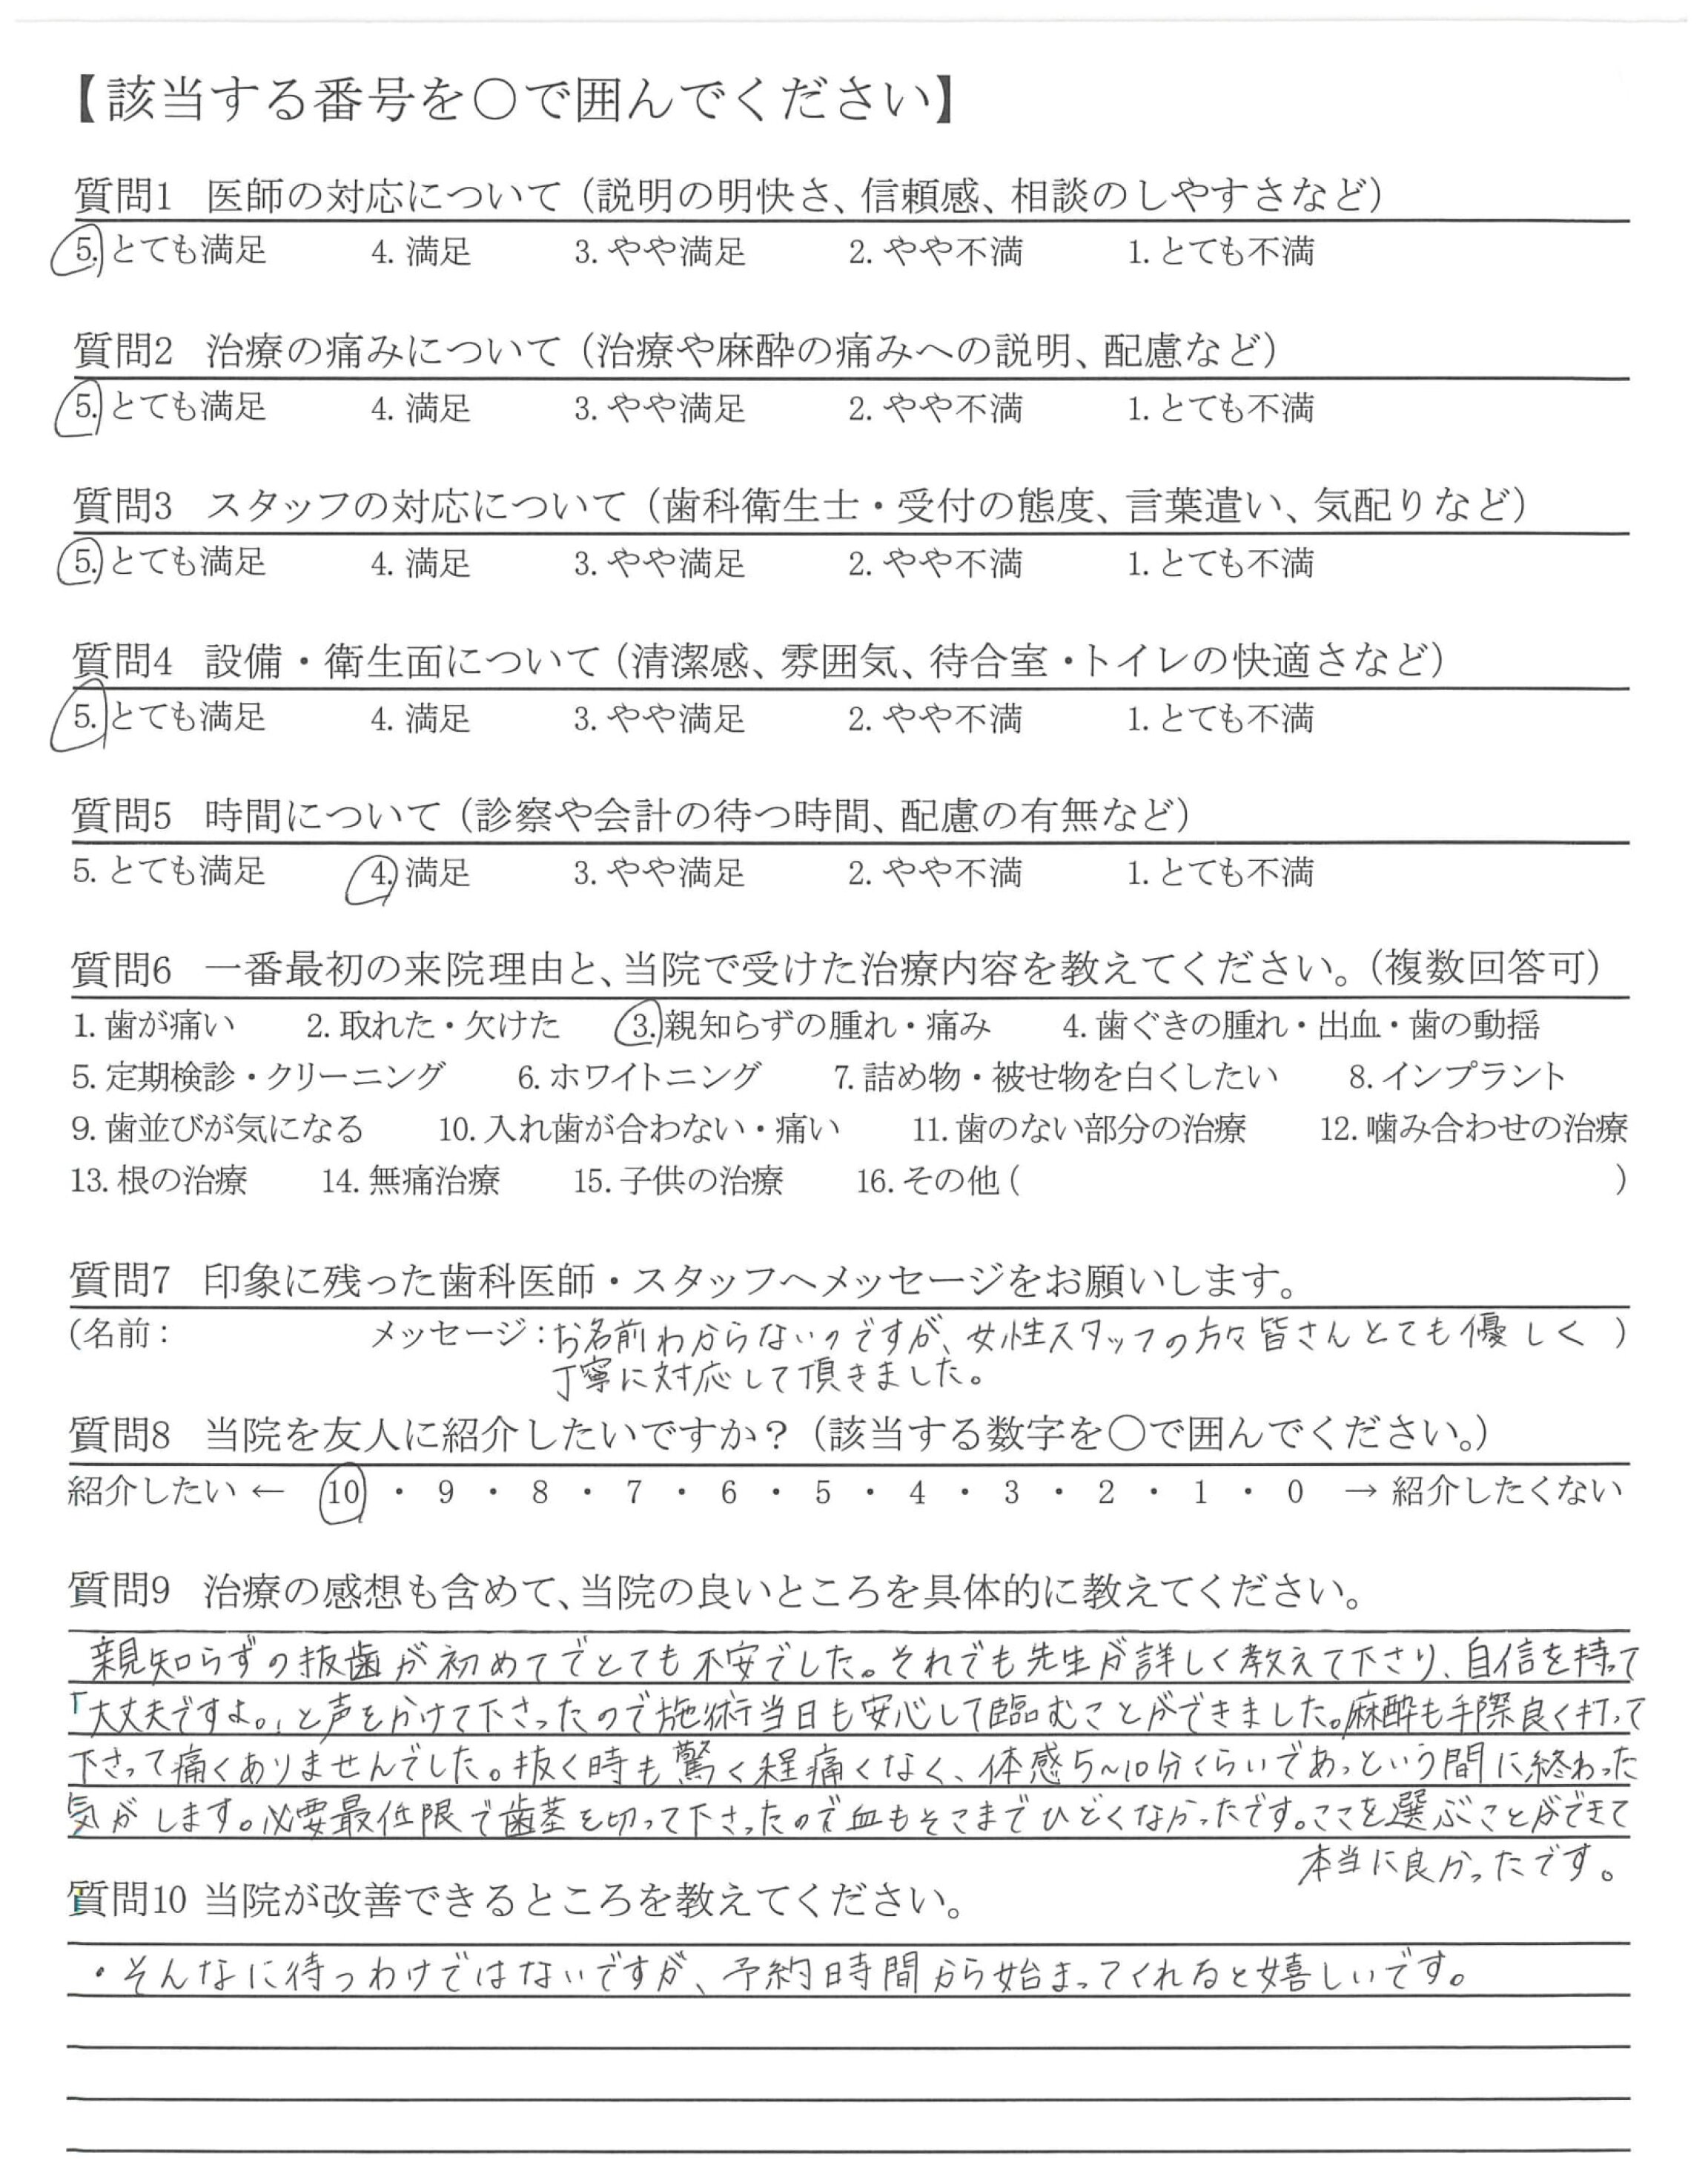 【該当する番号を〇で囲んでください】
質問1 医師の対応について（説明の明快さ、信頼感、相談のしやすさなど）
5. とても満足 4. 満足 3. やや満足 2. やや不満 1. とても不満
質問2 治療の痛みについて（治療や麻酔の痛みへの説明、配慮など）
5. とても満足 4. 満足 3. やや満足 2. やや不満 1. とても不満
質問3 スタッフの対応について（歯科衛生士・受付の態度、言葉遣い、気配りなど）
5. とても満足 4. 満足 3. やや満足 2. やや不満 1. とても不満
質問4 設備・衛生面について（清潔感、雰囲気、待合室・トイレの快適さなど）
5. とても満足 4. 満足 3. やや満足 2. やや不満 1. とても不満
質問5 時間について（診察や会計の待つ時間、配慮の有無など）
5. とても満足 4. 満足 3. やや満足 2. やや不満 1. とても不満
質問6 一番最初の来院理由と、当院で受けた治療内容を教えてください。（複数回答可）
1. 歯が痛い 2. 取れた・欠けた 3. 親知らずの腫れ・痛み 4. 歯ぐきの腫れ・出血・歯の動揺
5. 定期検診・クリーニング 6. ホワイトニング 7. 詰め物・被せ物を白くしたい 8. インプラント
9. 歯並びが気になる 10. 入れ歯が合わない・痛い 11. 歯のない部分の治療 12. 噛み合わせの治療
13. 根の治療 14. 無痛治療 15. 子供の治療 16. その他（ ）
質問7 印象に残った歯科医師・スタッフへメッセージをお願いします。
（名前： メッセージ：お名前わからないのですが、女性スタッフの方々皆さんとても優しく ）
丁寧に対応して頂きました。
質問8 当院を友人に紹介したいですか？（該当する数字を〇で囲んでください。）
紹介したい ← 10 ・ 9 ・ 8 ・ 7 ・ 6 ・ 5 ・ 4 ・ 3 ・ 2 ・ 1 ・ 0 → 紹介したくない
質問9 治療の感想も含めて、当院の良いところを具体的に教えてください。
親知らずの抜歯が初めてでとても不安でした。それでも先生が詳しく教えて下さり、自信を持って
「大丈夫ですよ。」と声をかけて下さったので施術当日も安心して臨むことができました。麻酔も手際良く打って
下さって痛くありませんでした。抜く時も驚く程痛くなく、体感5~10分くらいであっという間に終わった
気がします。必要最低限で歯茎を切って下さったので血もそこまでひどくなかったです。ここを選ぶことができて
本当に良かったです。
質問10 当院が改善できるところを教えてください。
・そんなに待つわけではないですが、予約時間から始まってくれると嬉しいです。